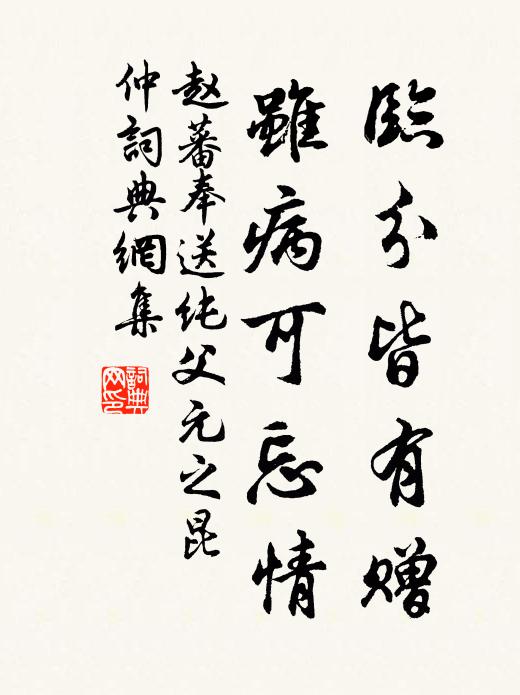 臨分皆有赠
雖病可忘情
赵蕃奉送纯父元之昆
仲詞典網集
詞典
网印